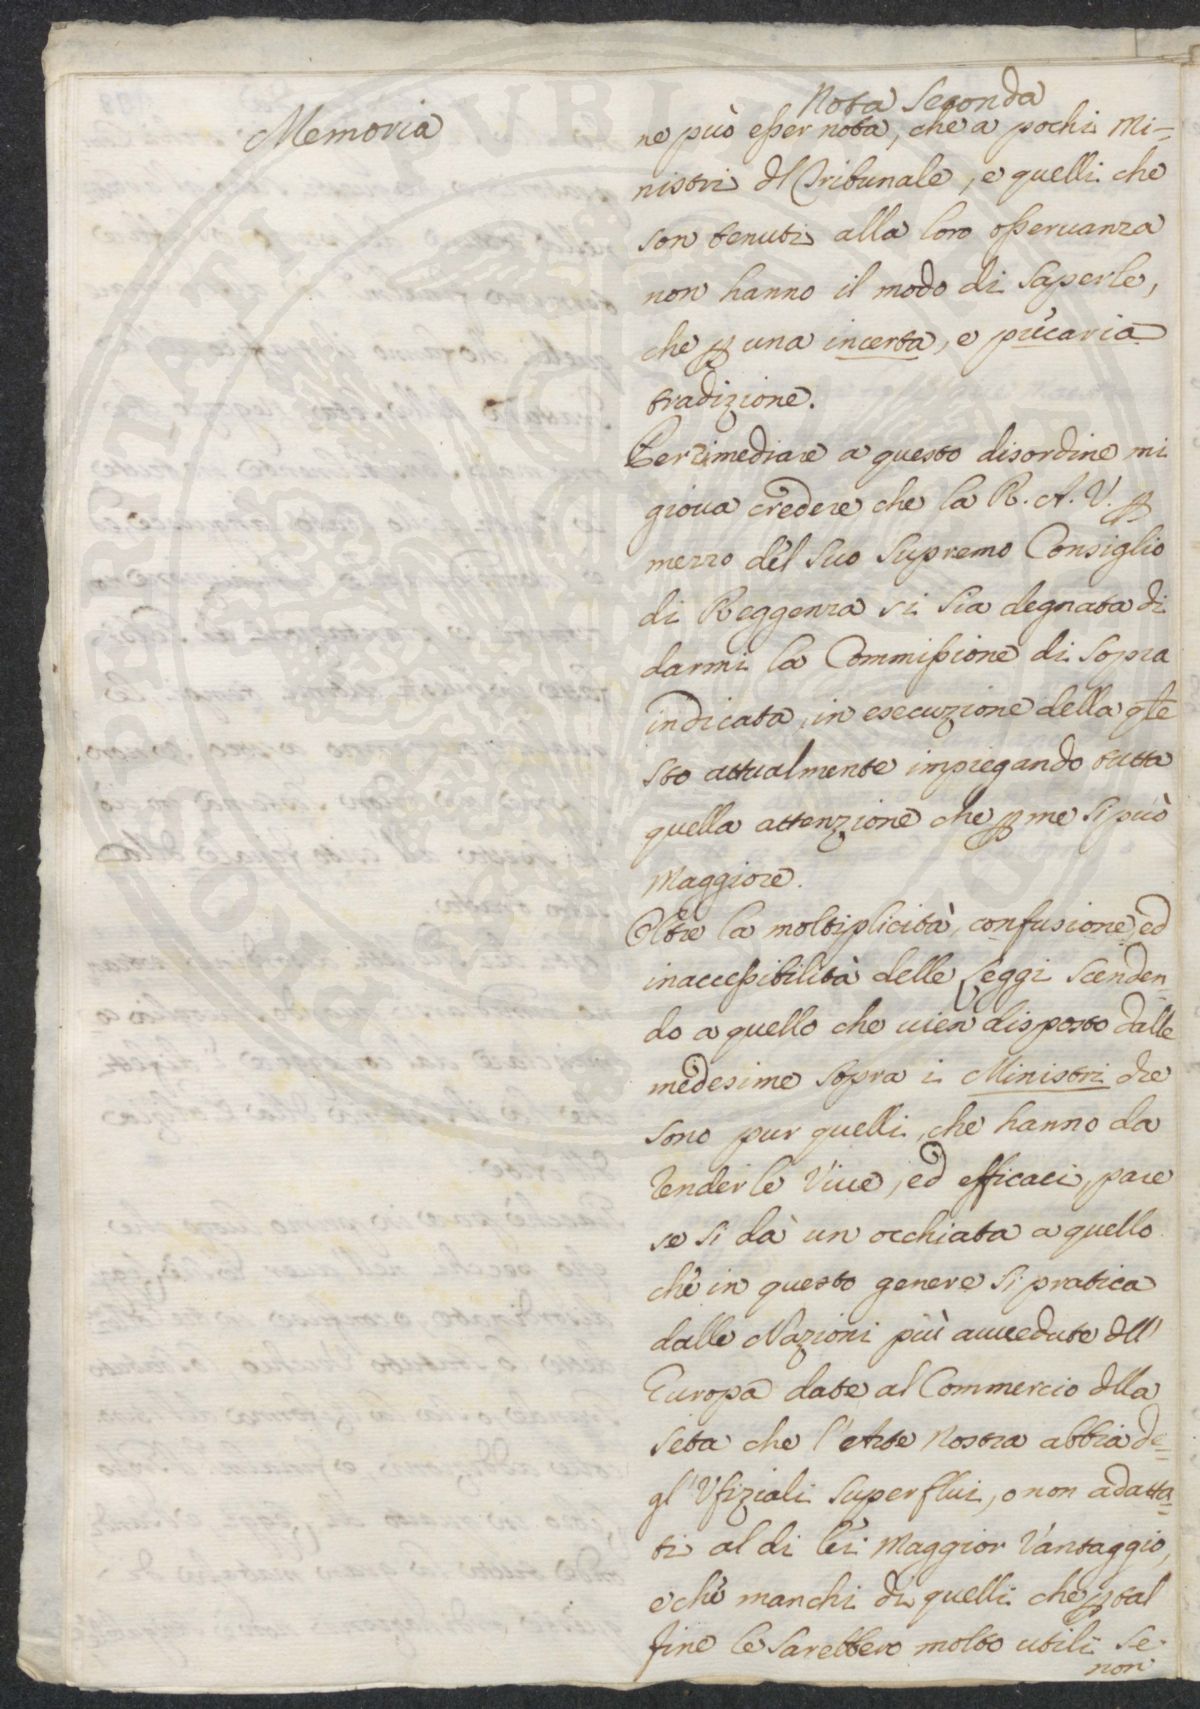 Memoria
Nota Seconda
ne può esser nota, che a pochi Mi=
nistri dl Tribunale, e quelli che
son tenuti alla loro osservanza
non hanno il modo di saperle,
che p una incerta, e precaria
tradizione.
Per rimediare a questo disordine mi
giova credere che la R. A. V. p
mezzo del Suo Supremo Consiglio
di Reggenza si sia degnata di
darmi la Commissione di sopra
indicata, in esecuzione della qle
sto attualmente impiegando tutta
quella attenzione che p me si può
Maggiore.
Oltre la moltiplicità, confusione, ed
inaccessibilità delle Leggi scenden=
do a quello che vien disposto dalle
medesime sopra i Ministri che
sono pur quelli, che hanno da
renderle vive, ed efficaci, pare
se si dà un occhiata a quello
che in questo genere si pratica
dalle Nazioni più avvedute dll'
Europa date al Commercio dlla
Seta che l'Arte Nostra abbia de=
gl'Ufiziali superflui, o non adatta=
ti al di lei Maggior Vantaggio,
e che manchi di quelli che p tal
fine le sarebbero molto utili se
non